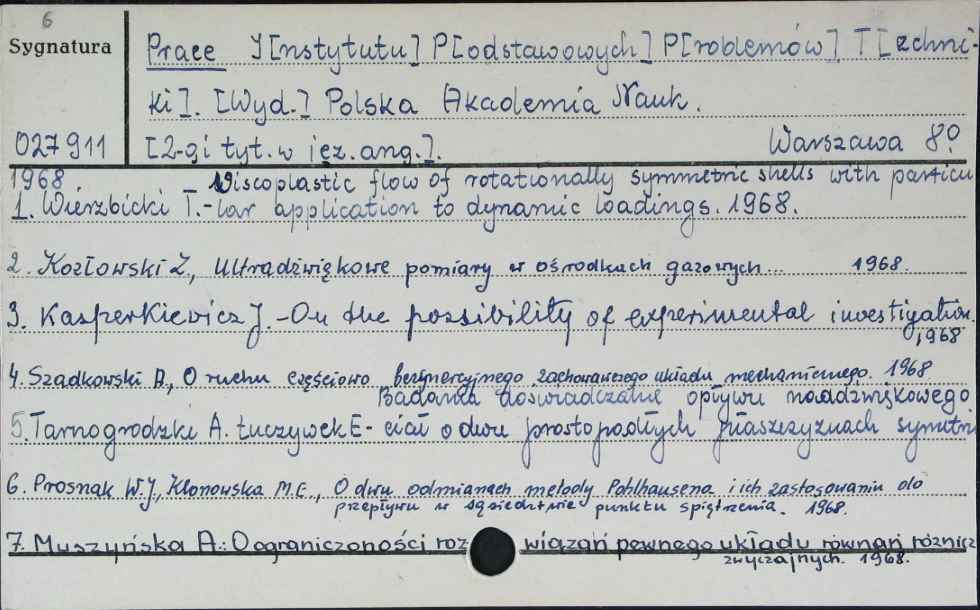 6
Sygnatura
Prace I[nstytutu] P[odstawowych] P[roblemów] T[echni-
ki]. [Wyd.] Polska Akademia Nauk.
027911 [2-gi tyt. w jęz. ang.]. Warszawa 8º
1968 Viscoplastic flow of rotationally symmetric shells with particu
1. Wierzbicki T. - lar application to dynamic loadings. 1968.
2. Kozłowski Z., Ultradźwiękowe pomiary w ośrodkach gazowych... 1968.
3. Kasperkiewicz J. - On the possibility of experimental investigation.
1968
4. Szadkowski B., O ruchu częściowo bezinercyjnego zachowawczego układu mechanicznego. 1968
Badania doświadczalne opływu naddźwiękowego
5. Tarnogrodzki A. Łuczywek E - ciał o dwu prostopadłych płaszczyznach symetri
6. Prosnak W.J., Klonowska M.E., O dwu odmianach metody Pohlhausena i ich zastosowaniu do
przepływu w sąsiedztwie punktu spiętrzenia. 1968.
7. Muszyńska A.: O ograniczoności roz wiązań pewnego układu równań różnicz
zwyczajnych. 1968.